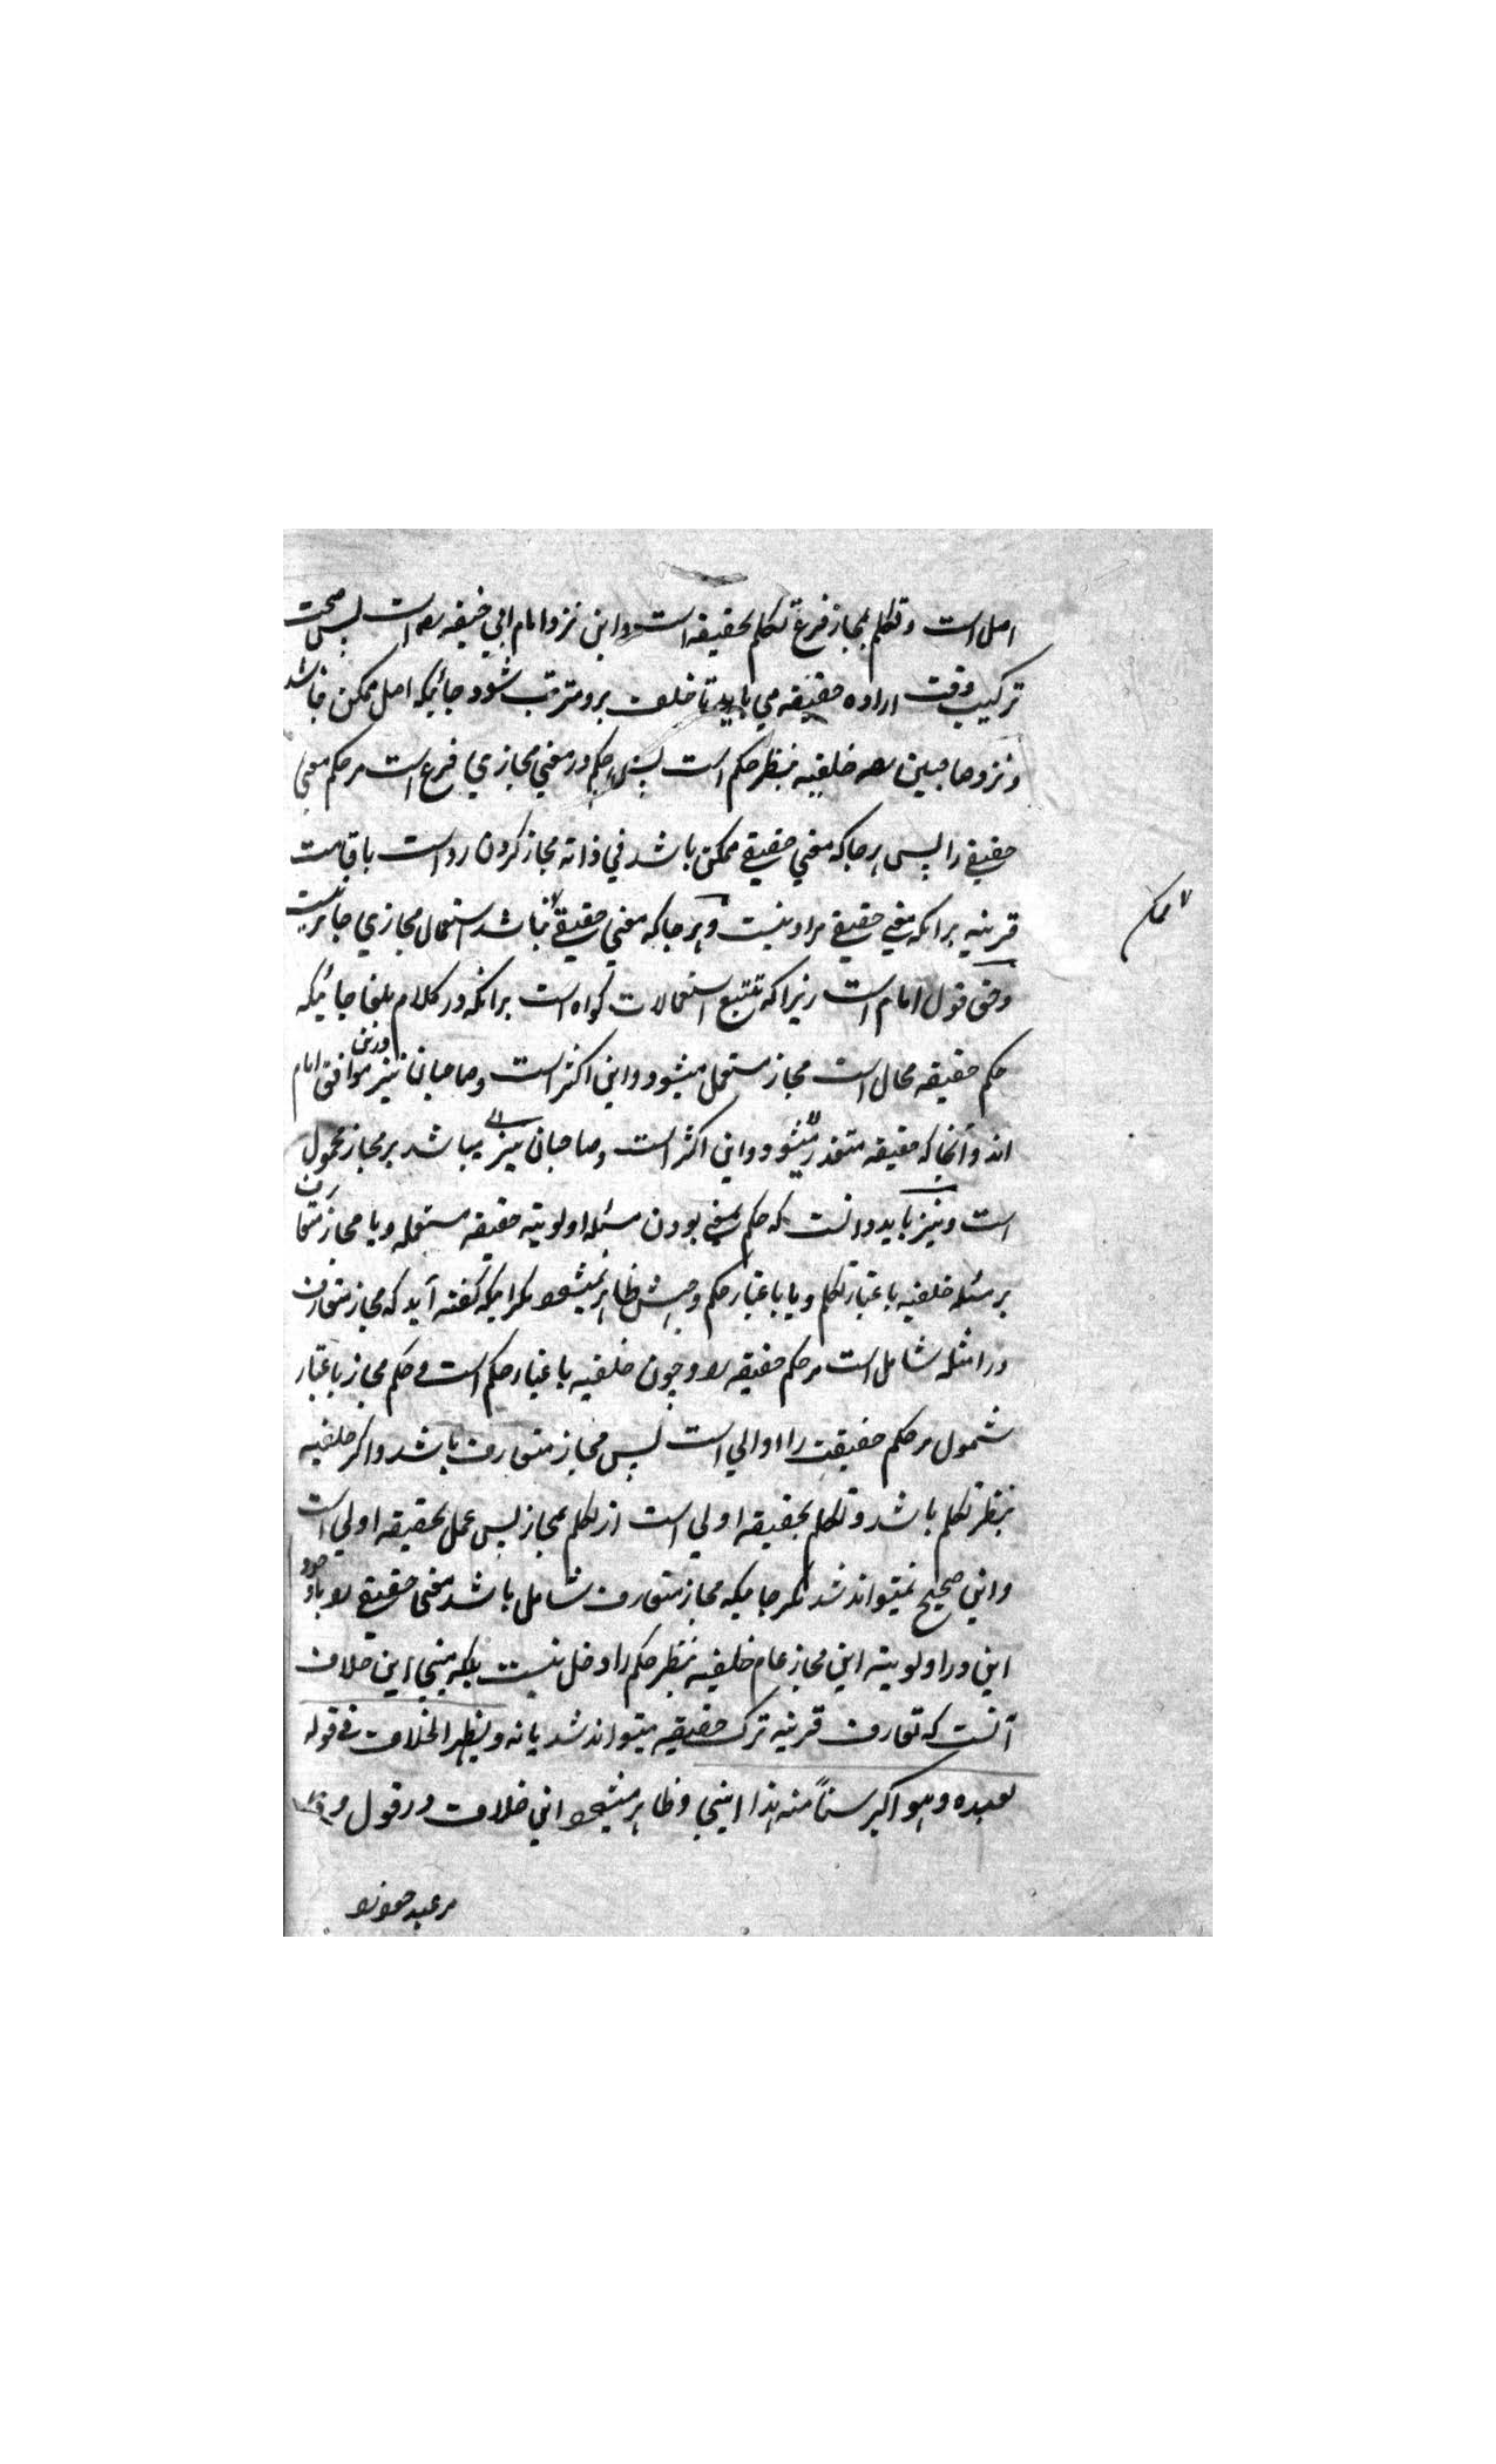 اصل است و تکلم بمجاز فرع تکلم بحقیقه است و این نزد امام ابی حنیفه رحمه است پس صحت
ترکیب وقت اراده حقیقه می باید تا خلف برو مترتب شود جائیکه اصل ممکن نباشد
و نزد صاحبین رحمه خلفیه بنظر حکم است پس حکم در معنی مجازی فرع است مر حکم معنی
حقیقے را پس هر جا که معنی حقیقے ممکن باشد فی ذاته مجاز کردن رواست باقامت
قرینه برانکه معنی حقیقے مراد نیست و هر جا که معنی حقیقے نباشد استعمال مجازی جائز نیست
ممکن
و حق قول امام است زیرا که تتبع استعمالات گواه است برانکه در کلام بلغا جائیکه
حکم حقیقه محال است مجاز مستعمل میشود و این اکثر است و صاحبان نیز درین موافق امام
اند و آنجا که حقیقه متعذر میشود و این اکثر است و صاحبان نیز میباشد بر مجاز محمول
است و نیز باید دانست که حکم مبنی بودن مسئله اولویته حقیقه مستعمله و یا مجاز متعارف
بر مسئله خلفیه باعتبار تکلم و یا باعتبار حکم وجهش ظاهر نمیشود مگر اینکه گفته آید که مجاز متعارف
در امثله شامل است مر حکم حقیقه را و چون خلفیه باعتبار حکم است و حکم مجاز باعتبار
شمول مر حکم حقیقت را اوالی است پس مجاز متعارف باشد و اگر خلفیه
بنظر تکلم باشد و تکلم بحقیقه اولی است از تکلم بمجاز پس عمل بحقیقه اولی است
و این صحیح نمیتواند شد مگر جائیکه مجاز متعارف شامل باشد معنی حقیقے را و با وجود
این در اولویته این مجاز عام خلفیه بنظر حکم را دخل نیست بلکه مبنی این خلاف
آنست که تعارف قرینه ترک حقیقه میتواند شد یا نه و یظهر الخلاف فی قوله
لعبده و هو اکبر سنا منه هذا ابنی و ظاهر میشود این خلاف در قول
مر عبد خود را